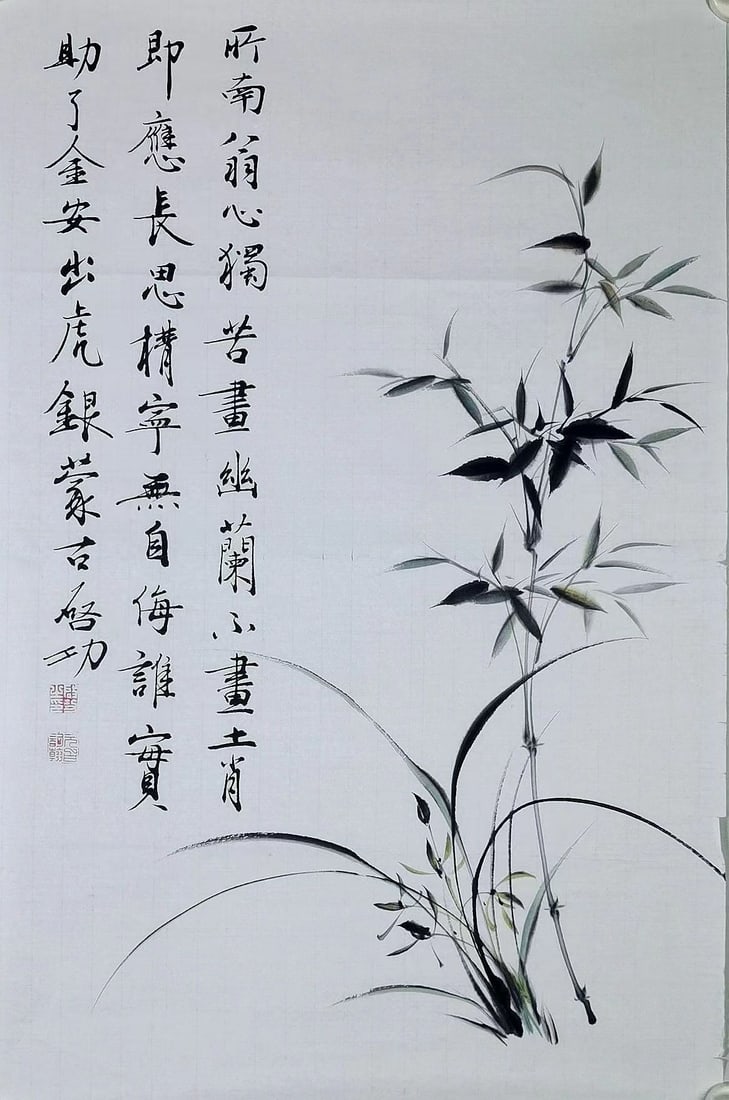 所南翁心獨苦畫幽蘭不畫土肖
即應長思構寧無自侮誰實
助了金安出虎銀蒙古啓功